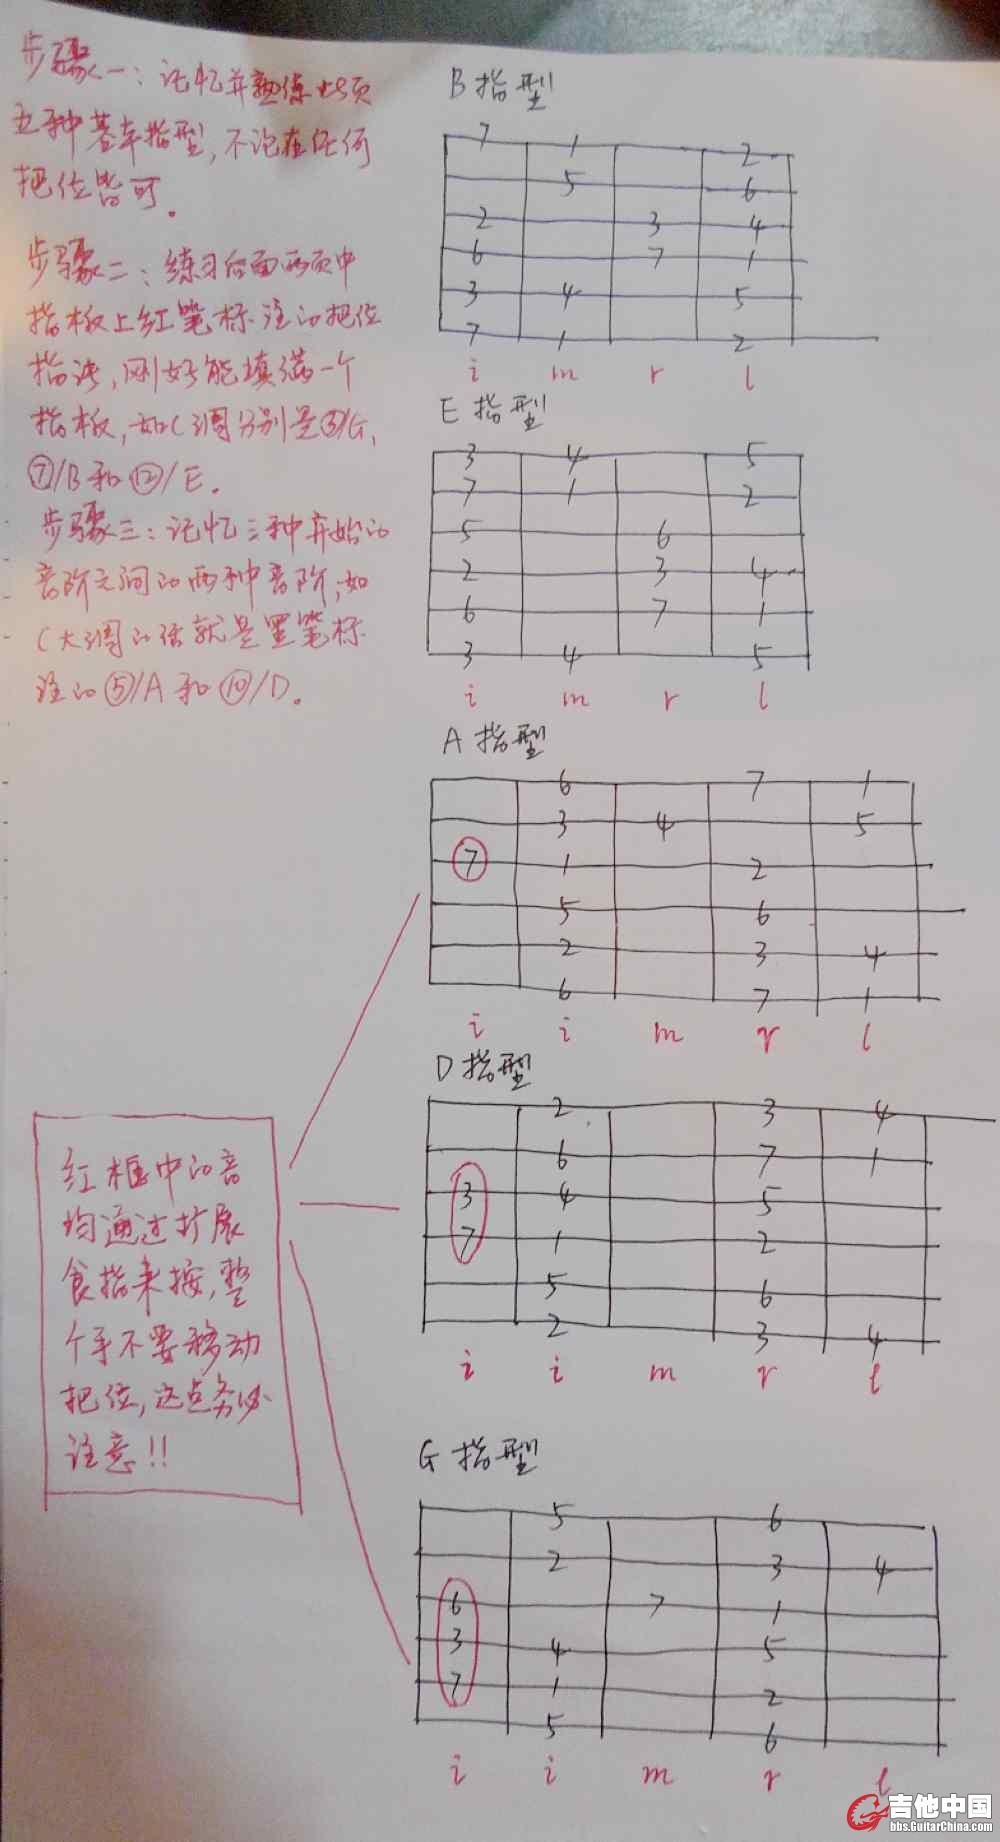 步骤一：记忆并熟练此页
五种基本指型，不论在任何
把位皆可。
步骤二：练习后面两页中
指板上红笔标注的把位
指法，刚好能填满一个
指板，如C调分别是③/G，
⑦/B和⑫/E。
步骤三：记忆三种开始的
音阶之间的两种音阶，如
C大调的话就是黑笔标
注的⑤/A和⑩/D。
B指型
7 1 2
5 6
2 3 4
6 7 1
3 4 5
7 1 2
i m r l
E指型
3 4 5
7 1 2
5 6
2 3 4
6 7 1
3 4 5
i m r l
A指型
6 7 1
3 4 5
7 1 2
5 6
2 3 4
6 7 1
i i m r l
D指型
2 3 4
6 7 1
3 4 5
7 1 2
5 6
2 3 4
i i m r l
红框中的音
均通过扩展
食指来按，整
个手不要移动
把位，这点务必
注意!!
G指型
5 6
2 3 4
6 7 1
3 4 5
7 1 2
5 6
i i m r l
吉他中国
bbs.GuitarChina.com